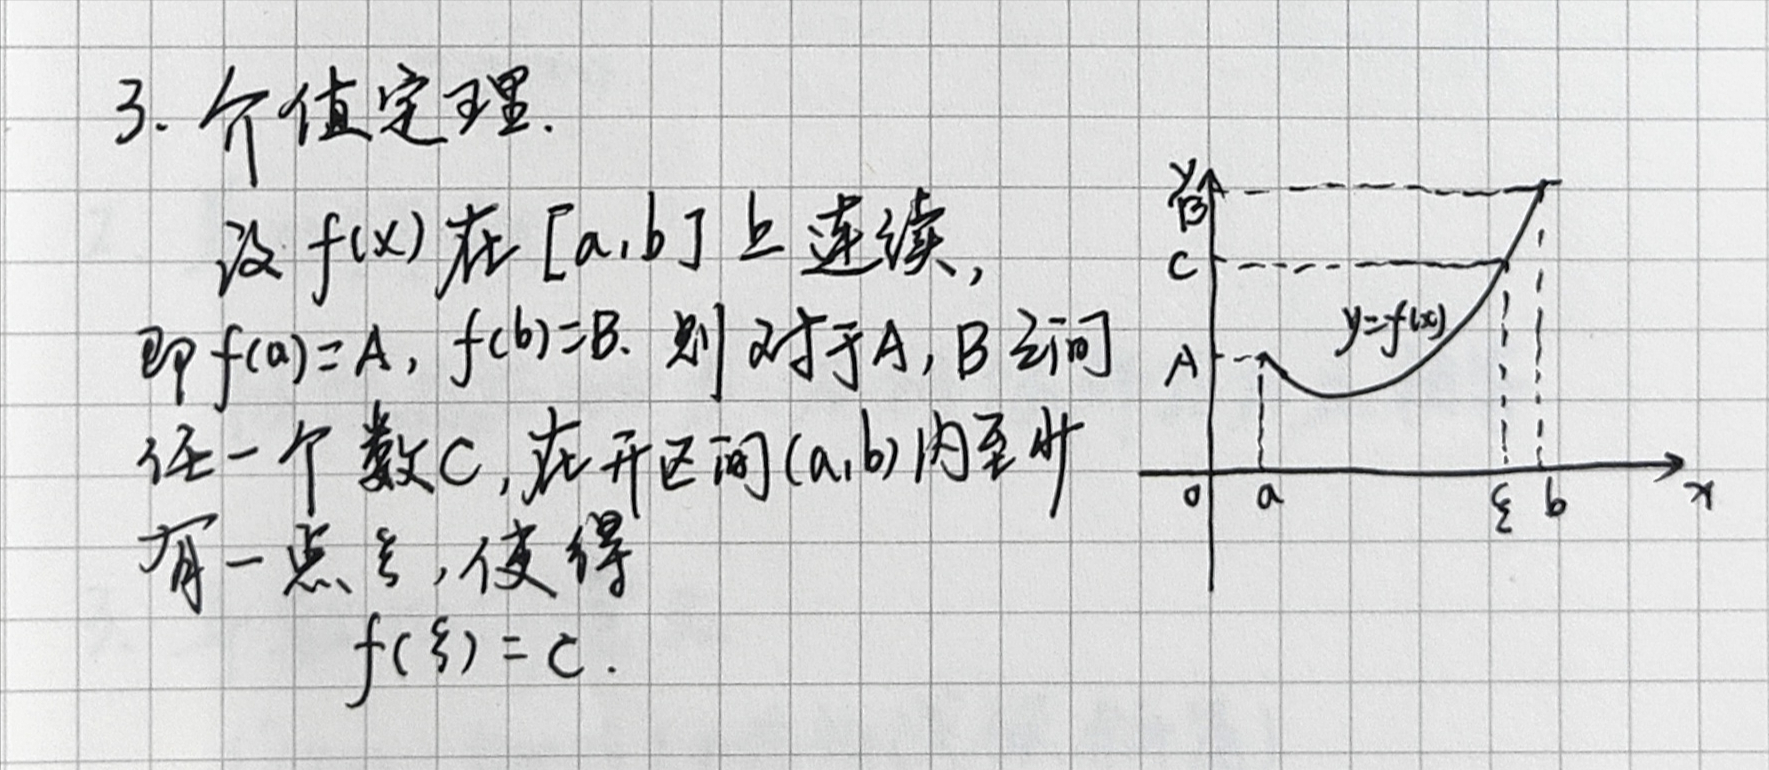 3. 介值定理.
设 f(x) 在 [a,b] 上连续,
即 f(a)=A, f(b)=B. 则对于A, B之间
任一个数C, 在开区间(a,b)内至少
有一点ξ, 使得
f(ξ) = C.
y
B
C
y=f(x)
A
0 a ξ b x